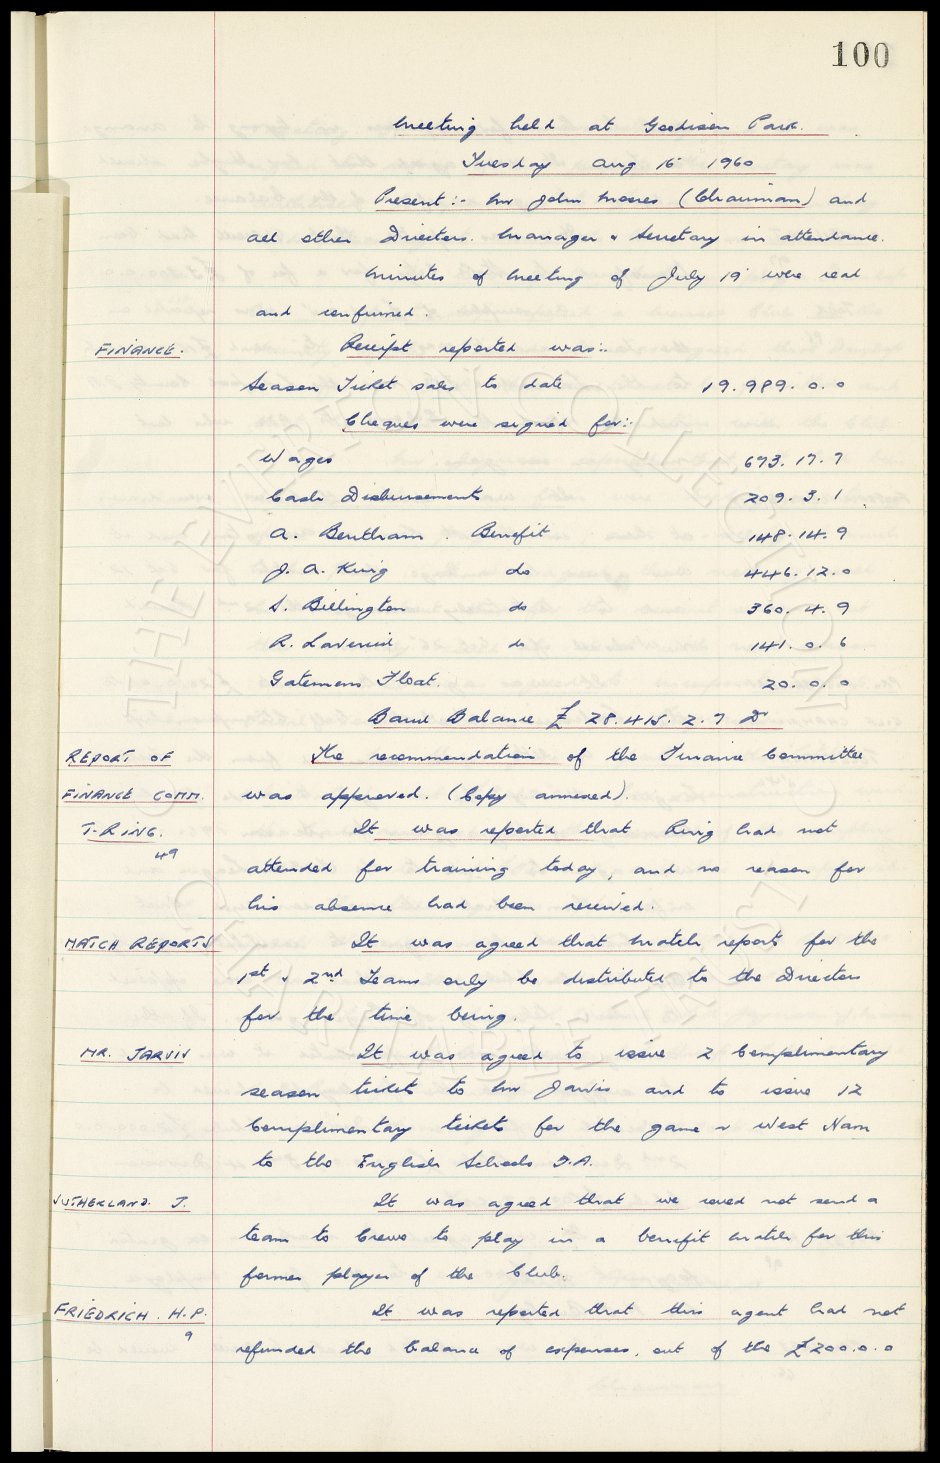 100
Meeting held at Goodison Park.
Tuesday Aug 16 1960
Present :- Mr John Moores (Chairman) and
all other Directors. Manager & Secretary in attendance.
Minutes of Meeting of July 19 were read
and confirmed.
FINANCE. Receipt reported was :-
Season Ticket sales to date 19.989.0.0
Cheques were signed for :-
Wages 673.17.7
Cash Disbursements 209.3.1
A. Bentham. Benefit 148.14.9
J. A. King do 446.12.0
S. Billington do 360.4.9
R. Laverick do 141.0.6
Gatemens Float. 20.0.0
Bank Balance £28.415.2.7 Dr
REPORT OF The recommendation of the Finance Committee
FINANCE COMM. was approved. (Copy annexed).
T. RING. It was reported that Ring had not
49 attended for training today, and no reason for
his absence had been received.
MATCH REPORTS It was agreed that match reports for the
1st & 2nd Teams only be distributed to the Directors
for the time being.
MR. JARVIS It was agreed to issue 2 Complimentary
season tickets to Mr Jarvis and to issue 12
Complimentary tickets for the game v West Ham
to the English Schools F.A.
SUTHERLAND. J. It was agreed that we could not send a
team to Crewe to play in a benefit match for this
former player of the Club.
FRIEDRICH. H.P. It was reported that this agent had not
9 refunded the balance of expenses, out of the £200.0.0
THE EVERTON COLLECTION
CHARITABLE TRUST